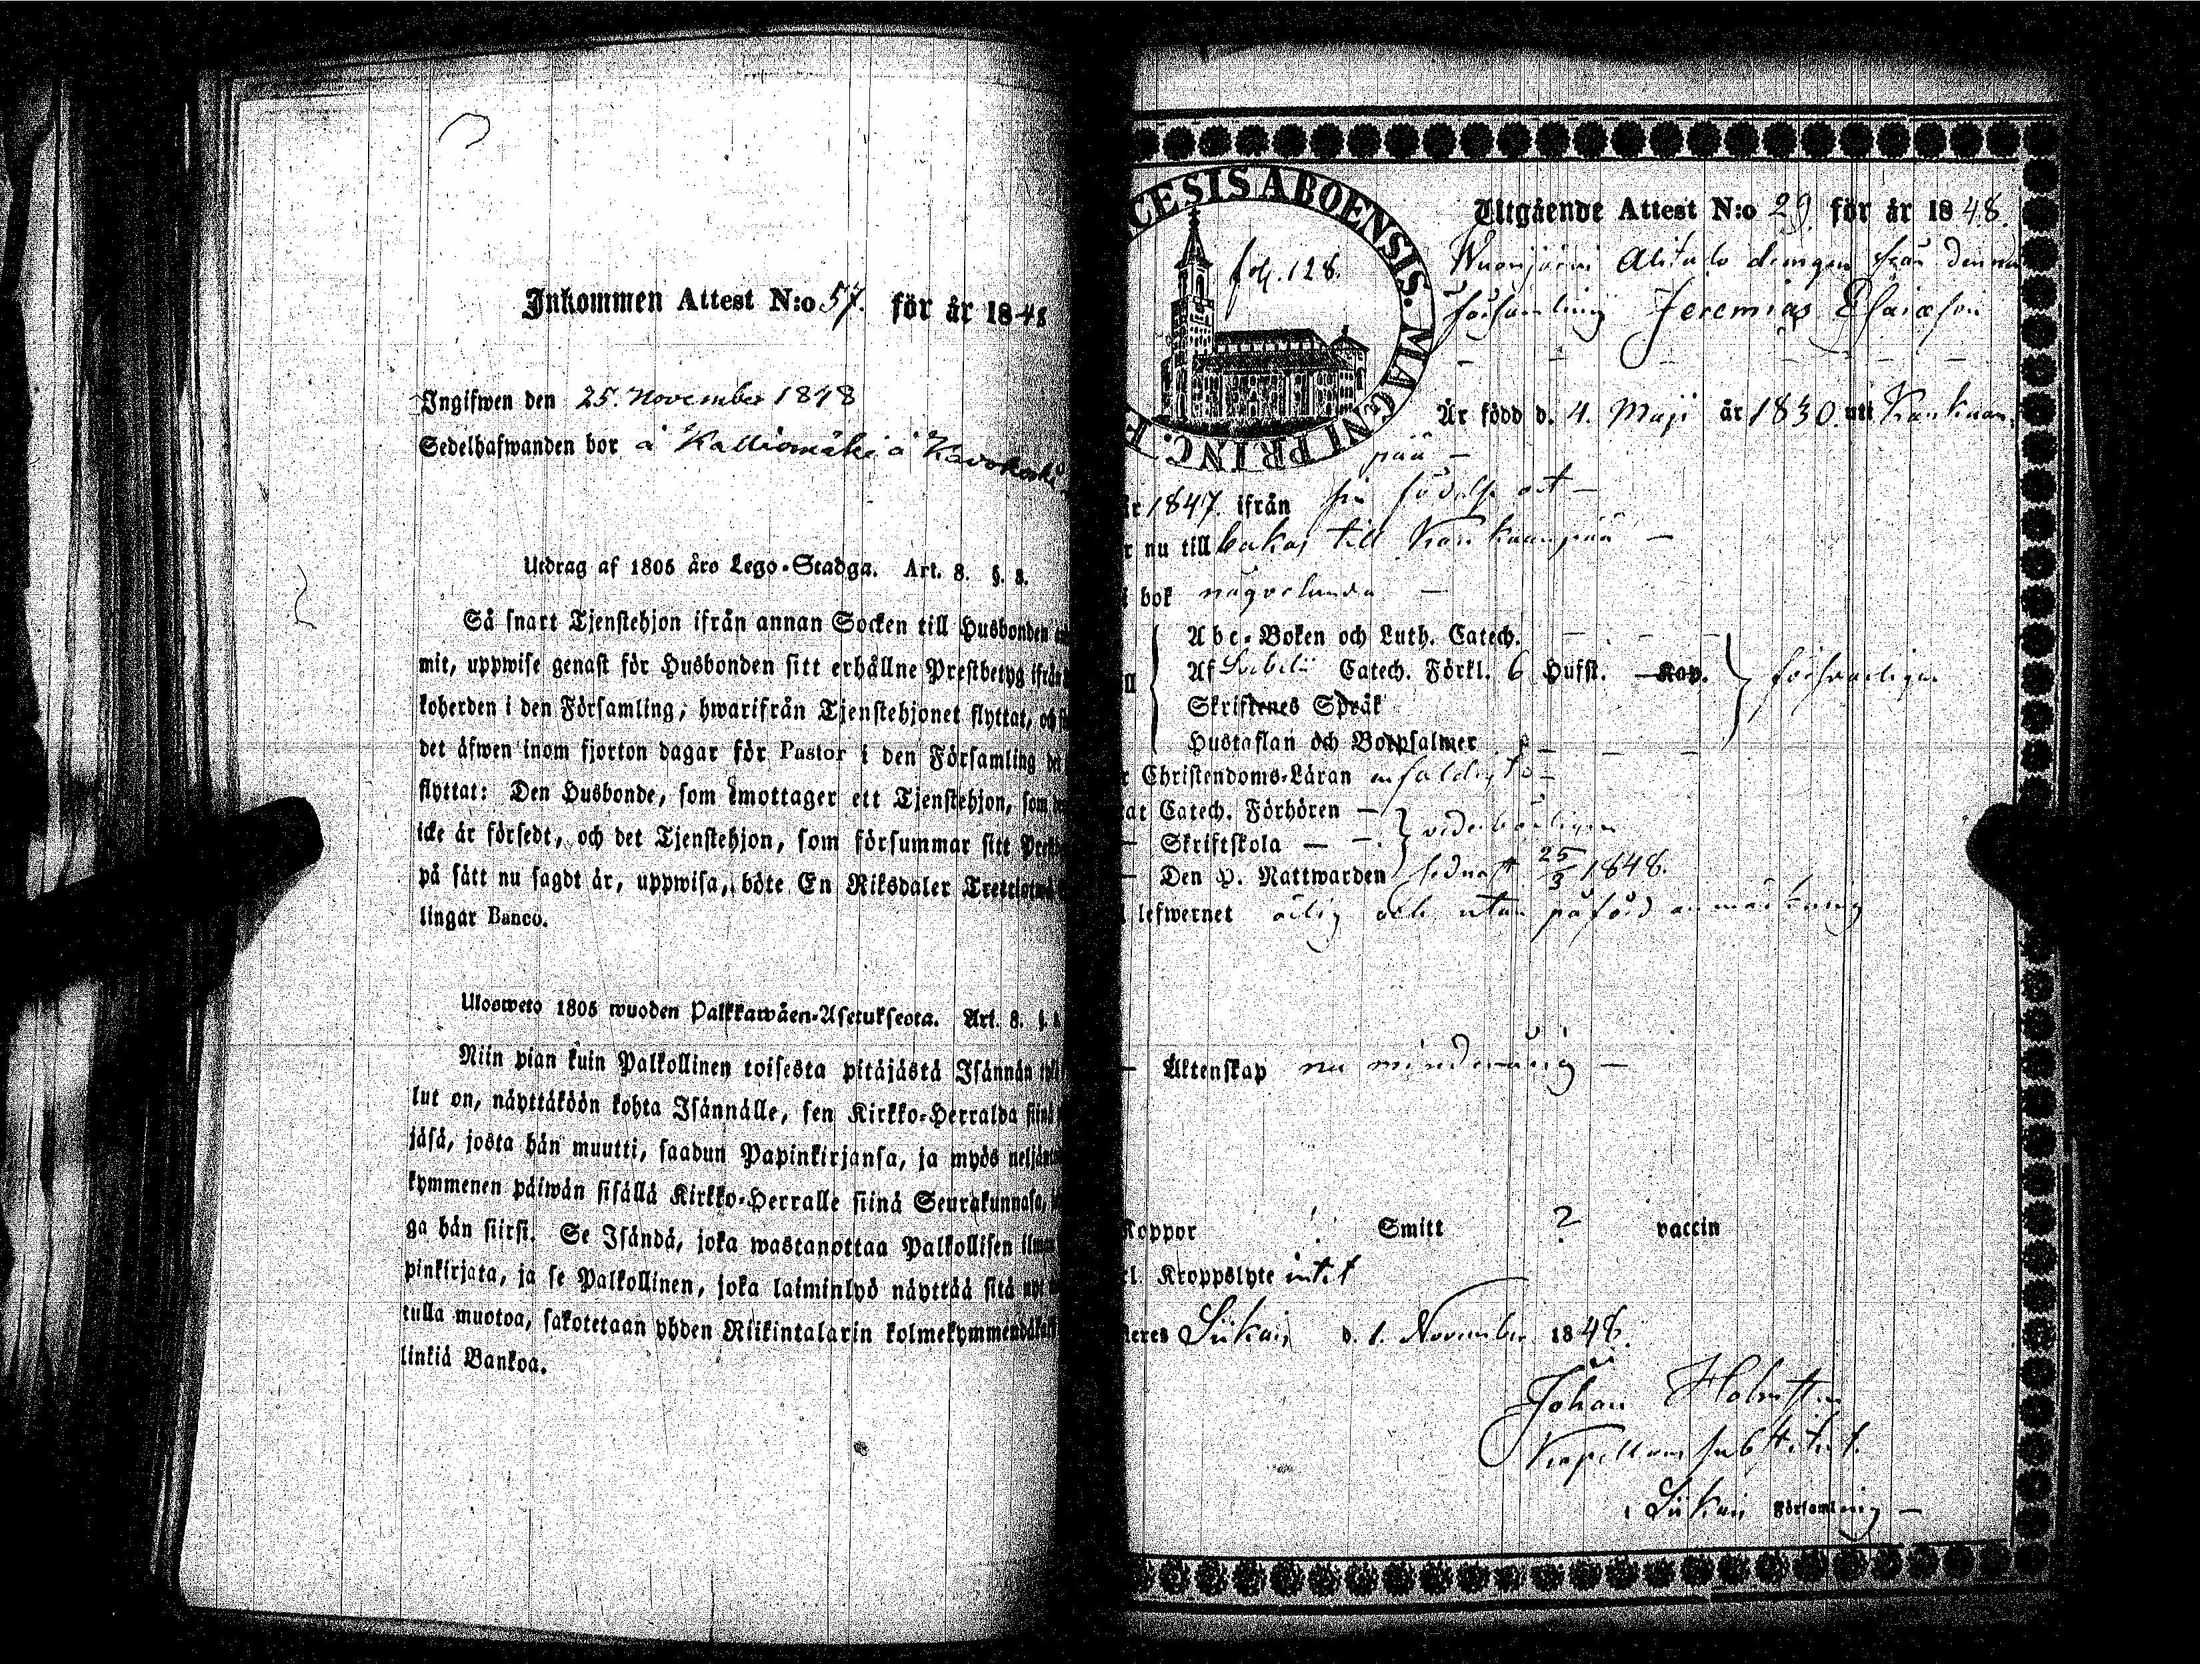 Inkommen Attest N:o 57. för år 1848
Ingifwen den 25. November 1848
Sedelhafwanden bor å Kalliomäki å
Utdrag af 1805 åro Lego-Stadga. Art. 8. §. 8.
Så snart Tjenstehjon ifrån annan Socken till Husbonden
mit, uppwise genast för Husbonden sitt erhållne Prestbetyg ifrån
koherden i den Församling, hwarifrån Tjenstehjonet flyttat, och
det äfwen inom fjorton dagar för Pastor i den Församling
flyttat: Den Husbonde, som emottager ett Tjenstehjon, som
icke är försedt, och det Tjenstehjon, som försummar sitt
på sätt nu sagdt är, uppwisa, böte En Riksdaler
lingar Banco.
Ulosweto 1805 wuoden Palkkawäen-Asetukseota. Art. 8. §.
Niin pian kuin Palkollinen toisesta pitäjästä Isännän
lut on, näyttäköön kohta Isännälle, sen Kirkko-Herralda
jäsä, josta hän muutti, saadun Papinkirjansa, ja myös
kymmenen päiwän sisällä Kirkko-Herralle siinä Seurakunnasa,
ga hän siirsi. Se Isändä, joka wastanottaa Palkollisen
pinkirjata, ja se Palkollinen, joka laiminlyö näyttää sitä
tulla muotoa, sakotetaan yhden Riikintalarin
linkiä Bankoa.
CESIS ABOENSIS. MAGNI PRINC. F
fol. 128.
Utgående Attest N:o 29 för år 1848.
Alitalo drengen från denna
församling Jeremias Esaiæson
Är född d. 4. Maji år 1830. uti Kankaan-
pää
år 1847. ifrån sin födelse ort
r nu till bakas till Kankaanpää
i bok någorlunda
Abc-Boken och Luth. Catech.
Af Catech. Förkl. 6 Hufst. Kap. försvarligen
Skriftenes Språk
Hustaflan och Botpsalmer
r Christendoms-Läran enfaldigt
tat Catech. Förhören
Skriftskola vederbörligen
Den H. Nattwarden sednast 25/3 1848.
lefwernet ärlig och utan påförd anmärkning
Äktenskap nu minderårig
Koppor Smitt ? vaccin
rl. Kroppslyte intet
teres Siikais d. 1. November 1848.
Johan Holmsten
Kapellans substitut.
i Siikais Församling